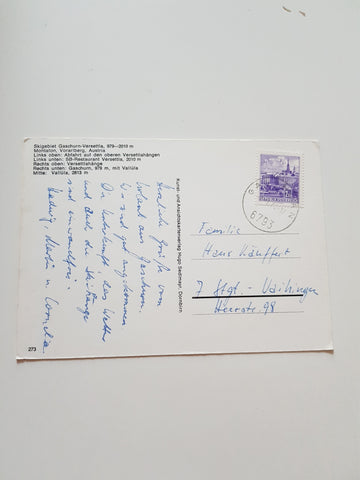 Skigebiet Gaschurn-Versettla, 979–2010 m
Montafon, Vorarlberg, Austria
Links oben: Abfahrt auf den oberen Versettlahängen
Links unten: SB-Restaurant Versettla, 2010 m
Rechts oben: Versettlahänge
Rechts unten: Gaschurn, 979 m, mit Vallüla
Mitte: Vallüla, 2813 m
Herzliche Grüße vom
Urlaub aus Gaschurn.
Wir sind gut angekommen.
Die Unterkunft, das Wetter
und auch die Skihänge
sind einwandfrei.
Hedwig, Martin u. Cornelia
273
Kunst- und Ansichtskartenverlag Hugo Sedlmayr, Dornbirn
6793
Familie
Hans Käuffert
7 Stgt. - Vaihingen
Heerstr. 98